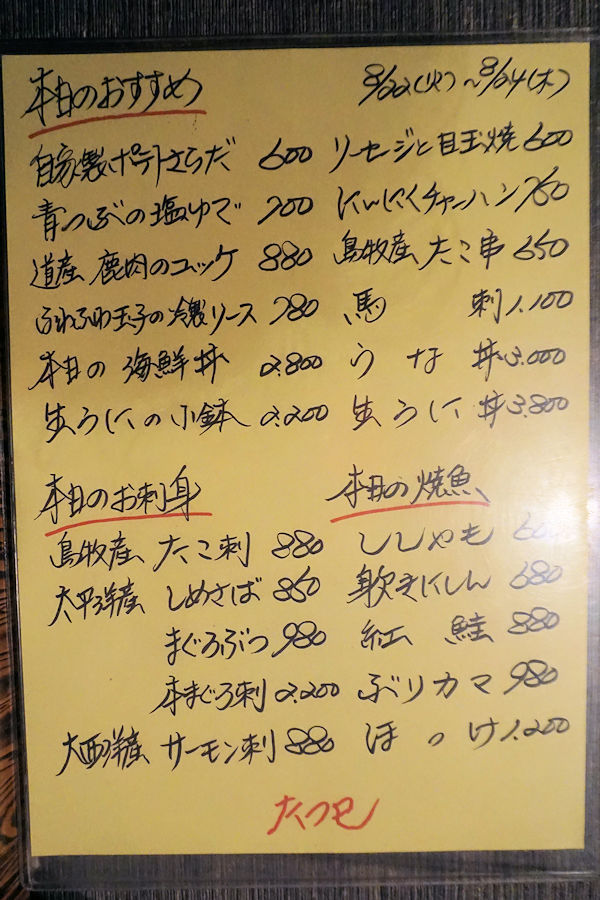 本日のおすすめ 8/22(火)～8/24(木)
自家製ポテトさらだ 600 ソーセージと目玉焼 600
青つぶの塩ゆで 700 にんにくチャーハン 760
道産 鹿肉のユッケ 880 島牧産 たこ串 650
ふわふわ玉子の冷製ソース 780 馬刺 1.100
本日の海鮮丼 2.800 うな丼 3.000
生うにの小鉢 2.200 生うに丼 3.800
本日のお刺身 本日の焼魚
島牧産 たこ刺 880 ししゃも
太平洋産 しめさば 860 身欠きにしん 680
まぐろぶつ 980 紅鮭 880
本まぐろ刺 2.200 ぶりカマ 980
大西洋産 サーモン刺 880 ほっけ 1.200
たつ巳